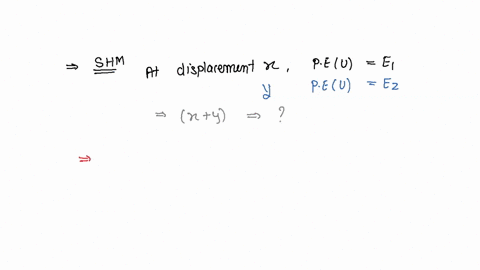 ⇒ SHM At displacement x, P.E(U) = E₁
y P.E(U) = E₂
⇒ (x+y) ⇒ ?
⇒